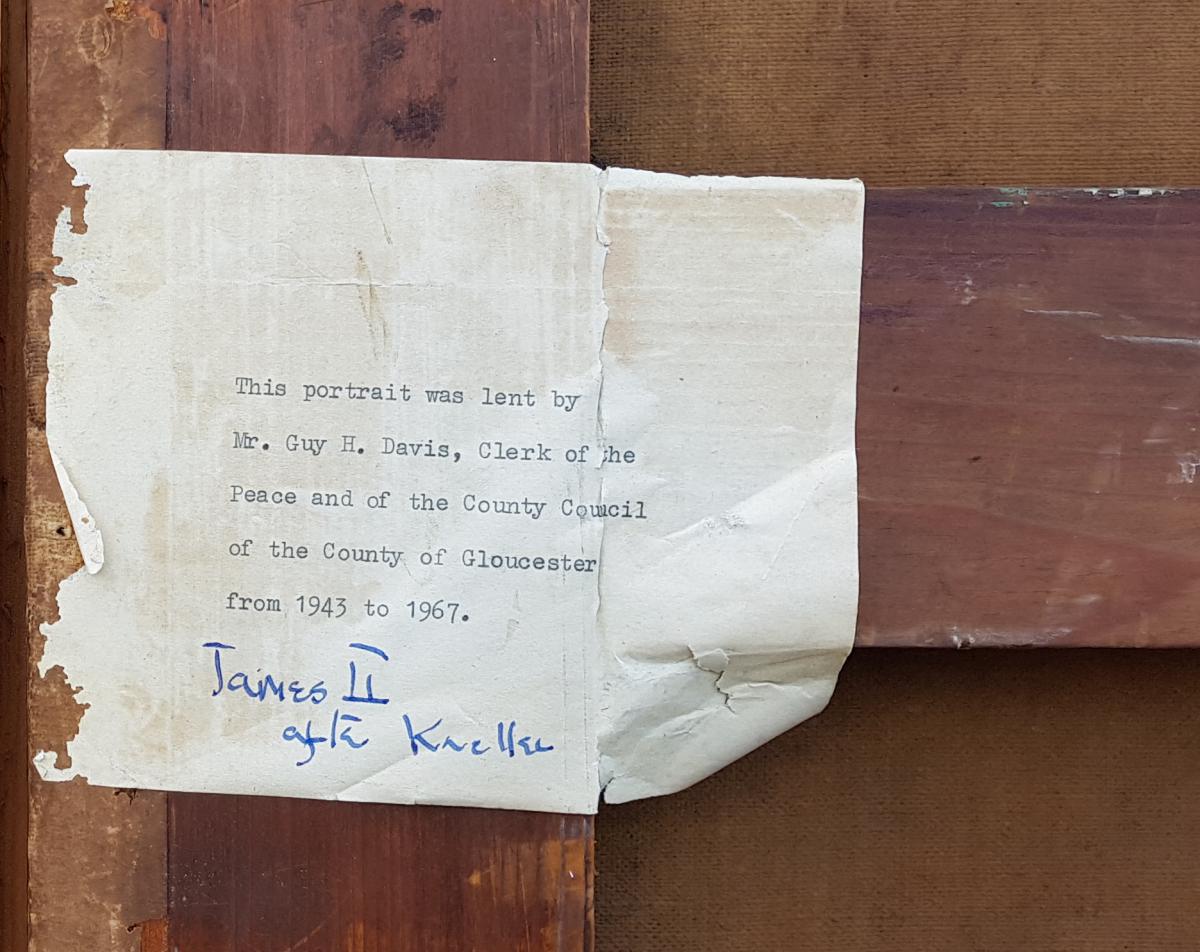 This portrait was lent by
Mr. Guy H. Davis, Clerk of the
Peace and of the County Council
of the County of Gloucester
from 1943 to 1967.
James II
after Kneller